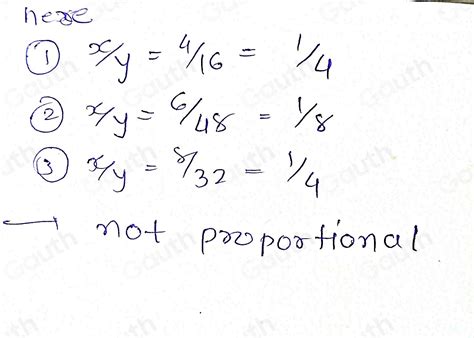 here
① x/y = 4/16 = 1/4
② x/y = 6/48 = 1/8
③ x/y = 8/32 = 1/4
— not proportional